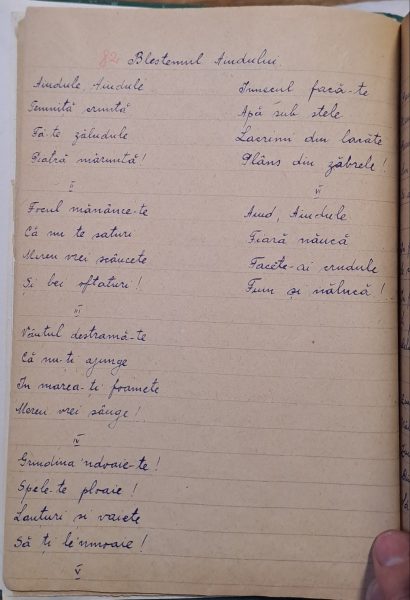 82 Blestemul Aiudului
Aiudule, Aiudule
Temniță cruntă
Fă-te zăludule
Piatră măruntă!
II
Focul mănânce-te
Că nu te saturi
Mereu vrei scâncete
Și bei oftaturi!
III
Vântul destramă-te
Că nu-ți ajunge
În marea-ți foamete
Mereu vrei sânge!
IV
Grindina 'ndoaie-te!
Spele-te ploaie!
Lanturi și vaiete
Să ți le'nmoaie!
V
Tunetul facă-te
Apă sub stele
Lacrimi din lacăte
Plâns din zăbrele!
VI
Aiud, Aiudule
Fiară năucă
Facete-ai crudule
Fum și nălucă!